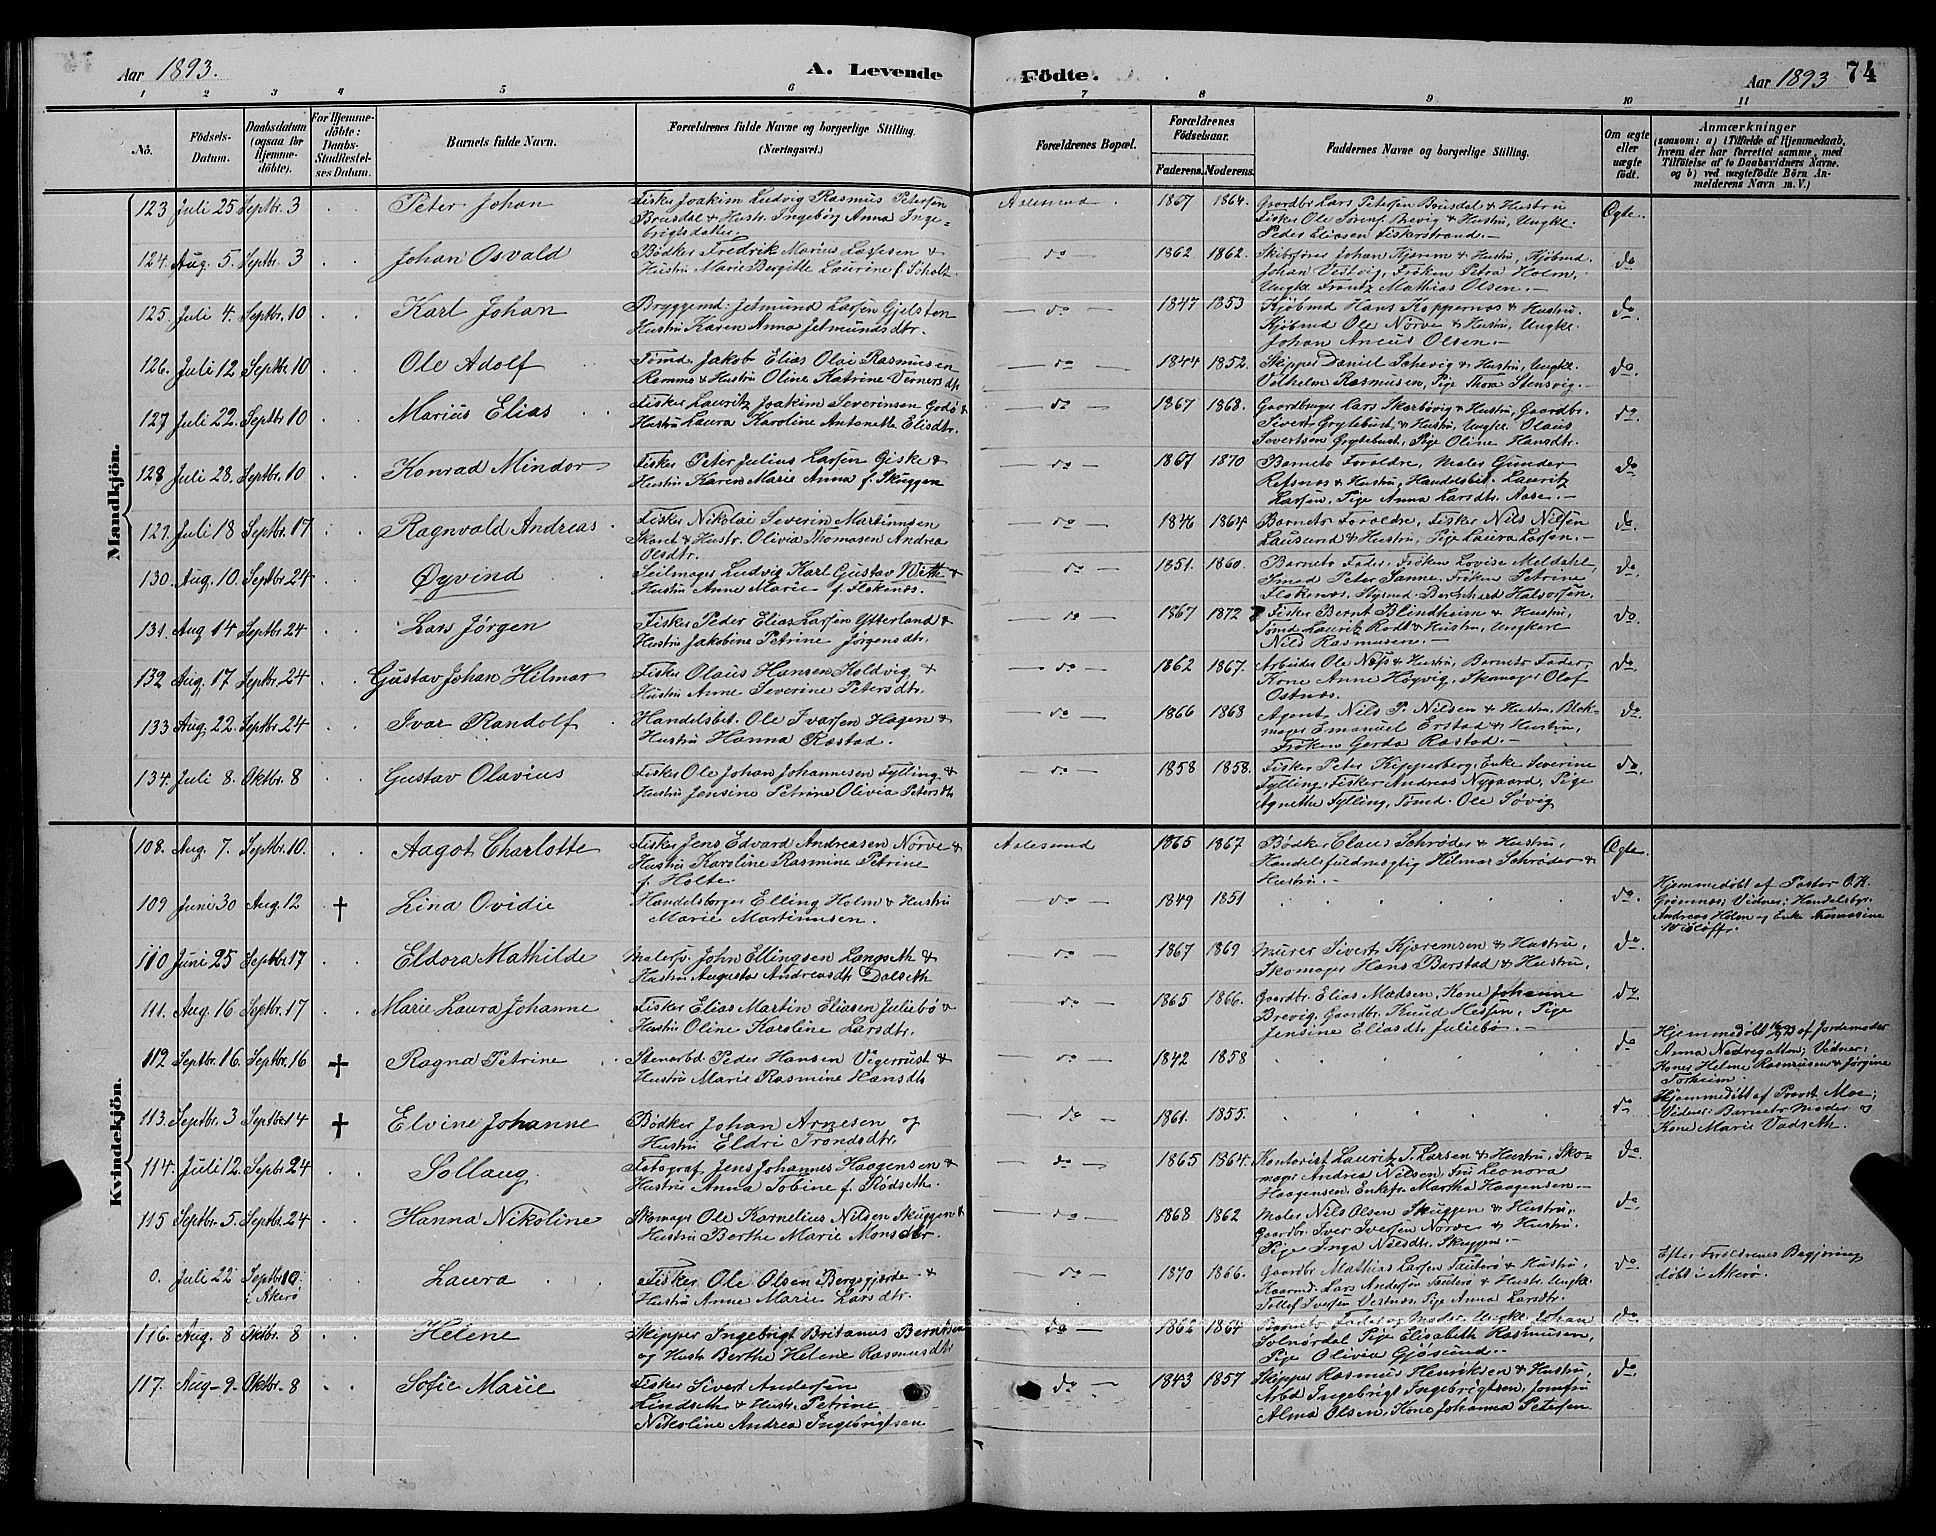 Aar 1893.
A. Levende Födte.
Aar 1893
74
1 2 3 4 5 6 7 8 9 10 11
No.
Födsels-Datum.
Daabsdatum (ogsaa for Hjemmedöbte).
For Hjemmedöbte: Daabs-Stadfæstelses Datum.
Barnets fulde Navn.
Forældrenes fulde Navne og borgerlige Stilling. (Næringsvei.)
Forældrenes Bopæl.
Forældrenes Födselsaar.
Faderens. Moderens.
Faddernes Navne og borgerlige Stilling.
Om ægte eller uægte födt.
Anmærkninger
(saasom: a) i Tilfælde af Hjemmedaab, hvem der har forrettet samme, med Tilföielse af to Daabsvidners Navne, og b) ved uægtefödte Börn Anmelderens Navn m. V.)
Mandkjön.
123 Juli 25 Septbr. 3 Peter Johan
Fisker Joakim Ludvig Rasmus Petersen
Brusdal & Hustr. Ingeborg Anna Inge-
brigtsdatter.
Aalesund 1867 1864.
Gaardbr. Lars Petersen Brusdal & Hustru
Fisker Ole Sörens. Brevig & Hustru, Ungkl.
Peder Eliasen Fiskerstrand.
Ægte.
124. Aug. 5. Septbr. 3 Johan Osvald
Bödker Fredrik Marius Larssen &
Hustru Marie Bergitte Laurine f. Scholtz.
do 1862 1862.
Skibsförer Johan Kjærem & Hustru, Kjöbmd.
Johan Vestvig, Fröken Petra Holm,
Ungkl. Frantz Mathias Olsen.
do
125. Juli 4. Septbr. 10 Karl Johan
Bryggemd. Jetmund Larsen Gjelsten
Hustru Karen Anna Jetmundsdtr.
do 1847 1853
Kjöbmd Hans Koppernæs & Hustru.
Kjöbmd Ole Nörve & Hustru, Ungkl.
Johan Aneus Olsen.
do.
126. Juli 12 Septbr 10 Ole Adolf
Tömd. Jakob Elias Olai Rasmusen
Remme & Hustru Oline Katrine Vernersdtr
do 1844 1852.
Skipper Daniel Schevig & Hustru, Ungkl.
Vilhelm Rasmusen, Pige Thora Stensvig.
do.
127 Juli 22. Septbr 10 Marius Elias
Fisker Lauritz Joakim Severinsen Godö &
Hustru Laura Karoline Antonette Elisdtr.
do 1867 1868.
Gaardbruger Lars Skarbövig & Hustru, Gaardbr.
Sivert Grytebust & Hustru, Ungkl. Olaus
Severtsen Grytebust, Pige Oline Hansdtr.
do.
128 Juli 28. Septbr. 10 Konrad Mindor
Fisker Peter Julius Larsen Giske &
Hustru Karen Marie Anna f. Skuggen
do 1867 1870
Barnets Foreldre, Maler Gunder
Refsnæs & Hustru, Handelsbet. Lauritz
Larsen, Pige Anna Larsdtr. Aase.
do
129. Juli 18 Septbr. 17 Ragnvald Andreas
Fisker Nikolai Severin Martinusen
Skaret & Hustr. Olivia Thomasen Andrea
Olsdtr.
do 1846 1864
Barnets Foreldre, Fisker Nils Nilsen
Lausund & Hustru, Pige Laura Larsen.
do.
130. Aug. 10. Septbr. 24 Øyvind
Seilmager Ludvig Karl Gustav Witte &
Hustru Anne Marie f. Flokenes.
do 1851. 1860.
Barnets Fader, Fröken Lovise Meldahl,
Smed Peter Sanne, Fröken Petrine
Flokenæs, Styrmd Bernhard Halvorsen,
do
131. Aug 14 Septbr. 24 Lars Jörgen
Fisker Peder Elias Larsen Ytterland &
Hustru Jakobine Petrine Jörgensdtr.
do 1867 1872
Fisker Bernt Blindheim & Hustru,
Tömd. Lauritz Rodt & Hustru, Ungkare
Nils Rasmusen.
do.
132 Aug. 17 Septbr. 24 Gustav Johan Hilmar
Fisker Olaus Hansen Koldvig &
Hustru Anne Severine Petersdtr.
do 1862 1867.
Arbeider Ole Næss & Hustru, Barnets Fader,
Kone Anne Högvig, Skomager Olaf
Ostnæs.
do
133 Aug. 22. Septbr. 24 Ivar Randolf
Handelsbet. Ole Ivarsen Hagen &
Hustru Hanna Rastad.
do 1866 1868
Agent Nils P. Nilsen & Hustru, Blok-
mager Emanuel Erstad & Hustru,
Fröken Gerda Rastad.
do.
134. Juli 8. Oktbr. 8 Gustav Olavius
Fisker Ole Johan Johannesen Fylling &
Hustru Jensine Petrine Olivia Petersdtr
do 1858 1858.
Fisker Peter Kipperberg, Enke Severine
Fylling, Fisker Andreas Nygaard, Pige
Agnette Fylling, Tömd. Ole Sövig
do.
Kvindekjön.
108. Aug. 7. Septbr. 10. Aagot Charlotte
Fisker Jens Edvard Andreasen Nörve &
Hustru Karoline Rasmine Petrine
f. Holte.
Aalesund 1865 1867
Bödker Claus Schröder & Hustru,
Handelsfuldmægtig Hilmar Schröder &
Hustru.
Ægte.
109 Juni 30 Aug. 12 † Lina Ovidie
Handelsborger Elling Holm & Hustru
Marie Martinusen.
do 1849 1851
do.
Hjemmedöbt af Pastor O. K.
Grimnæs; Vidner: Handelsbgr.
Andreas Holm og Enke Thomasine
Wisløff.
110 Juni 25 Septbr 17 Eldora Mathilde
Malers. John Ellingsen Langseth &
Hustru Augusta Andreasdtr Dalseth
do 1867 1869
Murer Sivert Kjæremsen & Hustru,
Skomager Hans Barstad & Hustru.
do
111. Aug. 16 Septbr. 17 Marie Laura Johanne
Fisker Elias Martin Eliasen Juliebö &
Hustru Oline Karoline Larsdtr.
do 1865 1866.
Gaardbr. Elias Madsen, Kone Johanne
Brevig, Gaardbr. Knud Hessen, Pige
Jensine Eliasdtr Juliebö.
do
112 Septbr. 16. Septbr. 16 † Ragna Petrine
Stenarbd. Peder Hansen Vigerust &
Hustru Marie Rasmine Hansdtr
do 1842 1858
do
Hjemmedöbt 16/9 93 af Jordemoder
Anna Nedregotten; Vidner:
Koner Helene Rasmusen & Jörgine
Torheim.
113. Septbr. 3 Septbr 14 † Elvine Johanne
Bödker Johan Arnesen og
Hustru Eldri Trondsdtr.
do 1861. 1855.
do
Hjemmedöbt af Provst Moe;
Vidner: Barnets Moder &
Kone Marie Vadseth.
114. Juli 12. Septbr. 24 Sollaug
Fotograf Jens Johannes Haagensen &
Hustru Anna Tobine f. Rödseth.
do 1865 1864.
Kontorist Lauritz T. Larsen & Hustru, Sko-
mager Andrea Nilsen, Fru Leonora
Haagensen, Enkefr. Martha Haagensen.
do.
115 Septbr. 5. Septbr. 24 Hanna Nikoline
Skomager Ole Kornelius Nilsen Skuggen &
Hustru Berthe Marie Monsdtr.
do 1868 1862
Maler Nils Olsen Skuggen & Hustru,
Gaardbr. Iver Iversen Nörve & Hustru.
Pige Inga Nilsdtr. Skuggen.
do.
0. Juli 22 Septbr 10 i Akerö Laura
Fisker Ole Olsen Bergsfjerde &
Hustru Anne Marie Larsdtr.
do 1870 1866.
Gaardbr Mathias Larsen Tauterö & Hustru,
Kaarmd. Lars Andersen Tauterö & Hustr. Ungkl.
Tollef Iversen Vestnæs, Pige Anna Larsdtr.
do.
Efter Foreldrenes Begjæring
döbt i Akerö.
116. Aug. 8 Oktbr. 8 Helene
Skipper Ingebrigt Britanus Berntsen
og Hustr. Berthe Helene Rasmusdtr
do 1862 1864
Barnets Fader og Moder, Ungkl. Johan
Solnördal, Pige Elisabeth Rasmusen,
Pige Olivia Gjösund.
do.
117. Aug. 9. Oktbr. 8 Sofie Marie
Fisker Sivert Andersen
Lindseth & Hustr. Petrine
Nikoline Andrea Ingebrigtsen
do 1843 1857
Skipper Rasmus Henriksen & Hustru,
Arbd Ingebrigt Ingebrigtsen, Jomfru
Alma Olsen, Kone Johanna Petersen
do